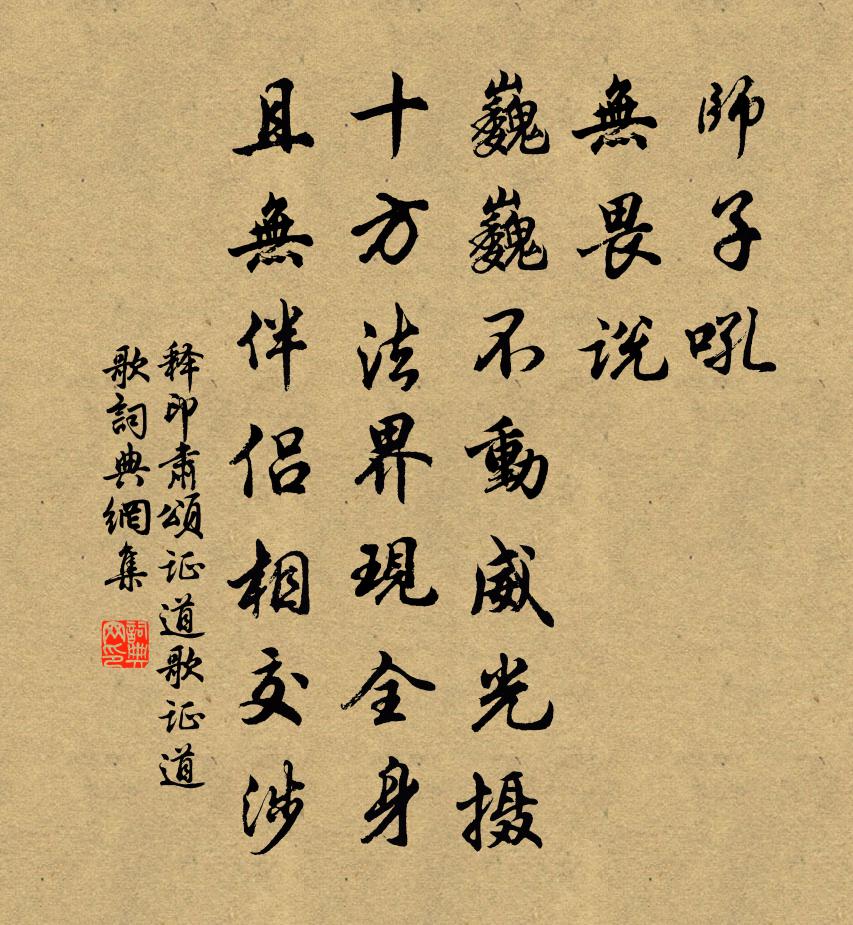 師子吼
無畏説
巍巍不動威光摄
十方法界現全身
且無伴侣相交涉
释印肃頌证道歌证道
歌詞典網集
詞典
网印